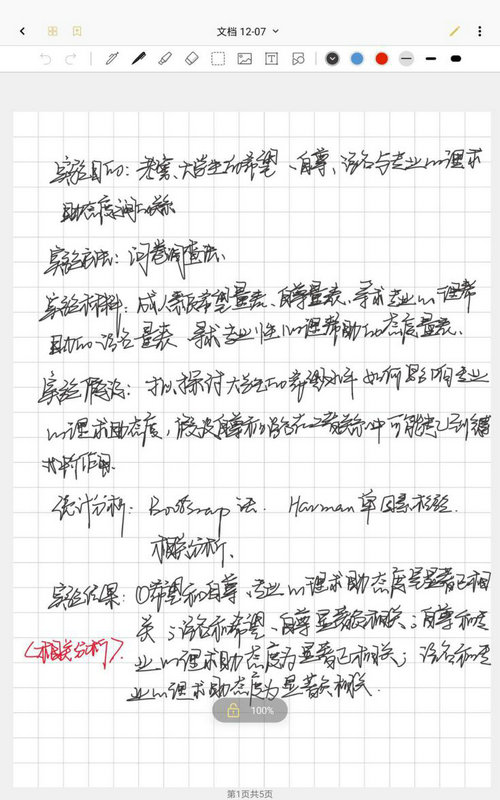 文档 12-07
实验目的：考察大学生的希望、自尊、污名与专业心理求
助态度之间的关系
实验方法：问卷调查法、
实验材料：成人素质希望量表、自尊量表、寻求专业心理帮
助的污名量表、寻求专业性心理帮助的态度量表、
实验假设：拟探讨大学生的希望水平如何影响专业
心理求助态度，假设自尊和污名在二者关系中可能起到链
式中介作用.
统计分析：Bootstrap法. Harman单因素检验.
相关分析、
实验结果：①希望和自尊、专业心理求助态度呈显著正相
关；污名和希望、自尊显著负相关；自尊和专
（相关分析）.
业心理求助态度为显著正相关；污名和专
业心理求助态度为显著负相关.
100%
第1页共5页